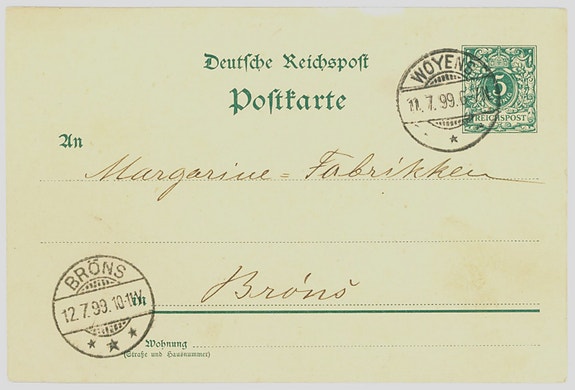 Deutsche Reichspost
Postkarte
WOYENS
11.7.99.6-7N
5
REICHSPOST
An
Margarine=Fabrikken
BRÖNS
12.7.99.10-11V.
in
Bröns
Wohnung
(Straße und Hausnummer)